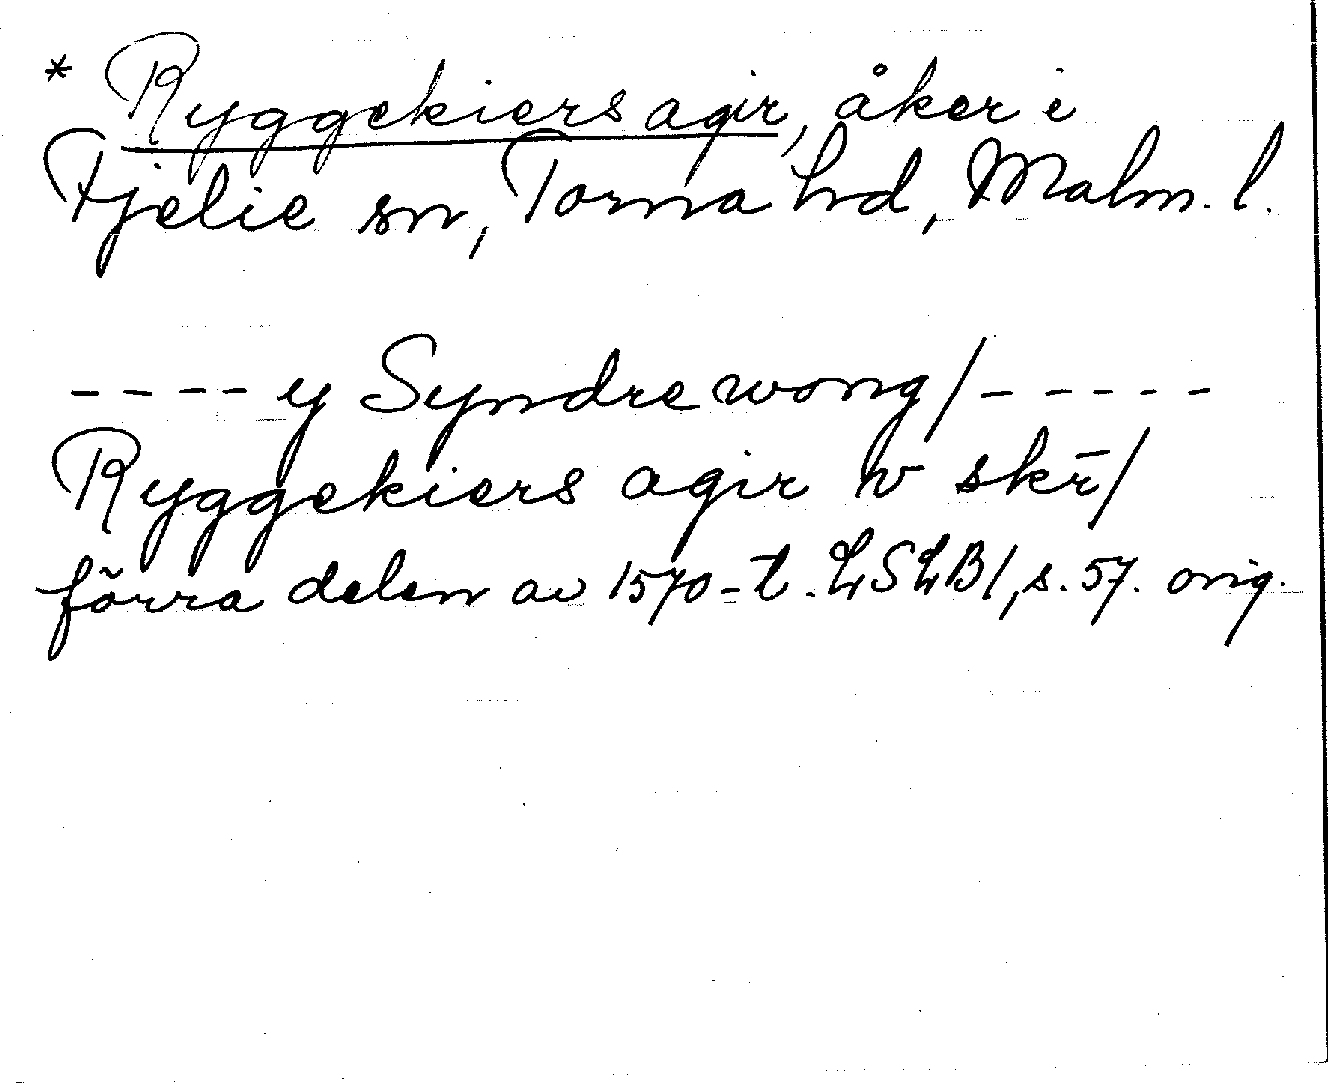 * Ryggekiers agir, åker i
Fjelie sn, Torna hd, Malm. l.
----y Syndre wong/-----
Ryggekiers agir w skr̄/
förra delen av 1570-t. LSLB1, s. 57. orig.